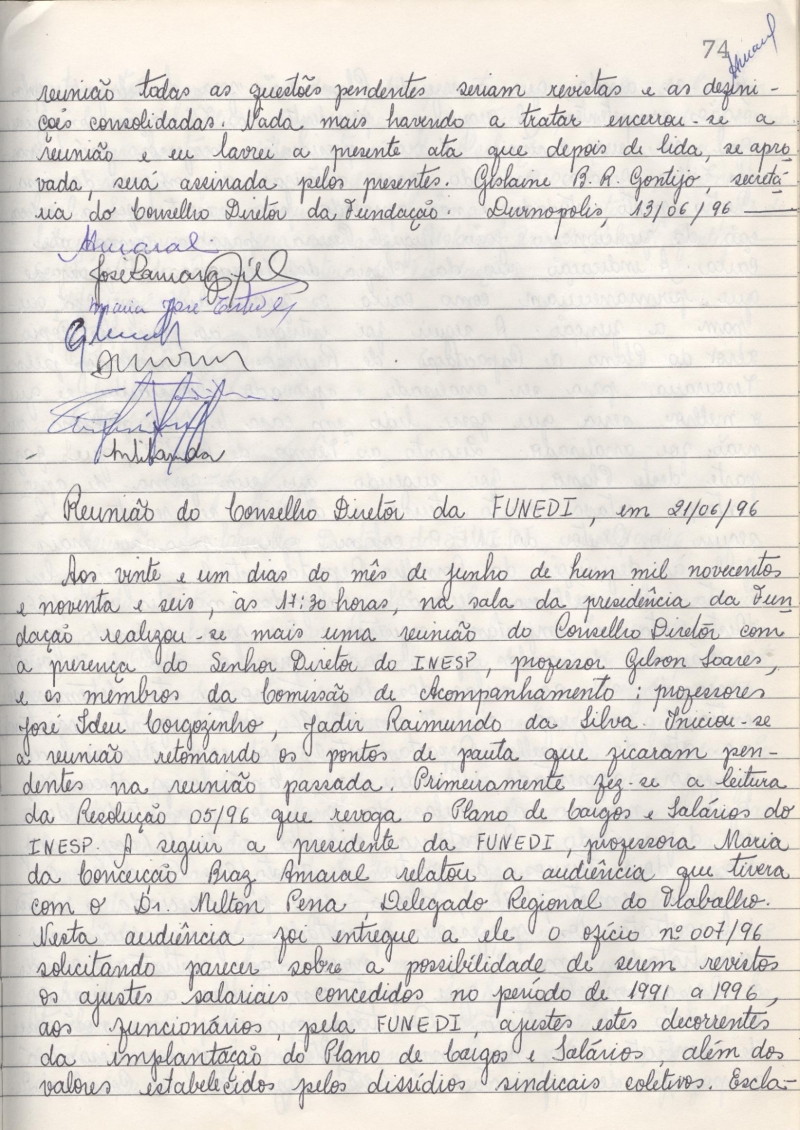 74
Amaral
reunião todas as questões pendentes seriam revistas e as defini-
ções consolidadas. Nada mais havendo a tratar encerrou-se a
reunião e eu lavrei a presente ata que depois de lida, se apro
vada, será assinada pelos presentes. Gislaine B. R. Gontijo, secretá
ria do Conselho Diretor da Fundação. Divinopolis, 13/06/96
Amaral
José Lamarq
Maria José Esteves
Reunião do Conselho Diretor da FUNEDI, em 21/06/96
Aos vinte e um dias do mês de junho de hum mil novecentos
e noventa e seis, às 17:30 horas, na sala da presidência da Fun
dação realizou-se mais uma reunião do Conselho Diretor com
a presença do Senhor Diretor do INESP, professor Gilson Soares,
e os membros da Comissão de Acompanhamento: professores
José Ideu Corgozinho, Jadir Raimundo da Silva. Iniciou-se
a reunião retomando os pontos de pauta que ficaram pen-
dentes na reunião passada. Primeiramente fez-se a leitura
da Resolução 05/96 que revoga o Plano de Cargos e Salários do
INESP. A seguir a presidente da FUNEDI, professora Maria
da Conceição Braz Amaral relatou a audiência que tivera
com o Dr. Nilton Pena, Delegado Regional do Trabalho.
Nesta audiência foi entregue a ele o ofício nº 007/96
solicitando parecer sobre a possibilidade de serem revistos
os ajustes salariais concedidos no período de 1991 a 1996,
aos funcionários, pela FUNEDI, ajustes estes decorrentes
da implantação do Plano de Cargos e Salários, além dos
valores estabelecidos pelos dissídios sindicais coletivos. Escla-